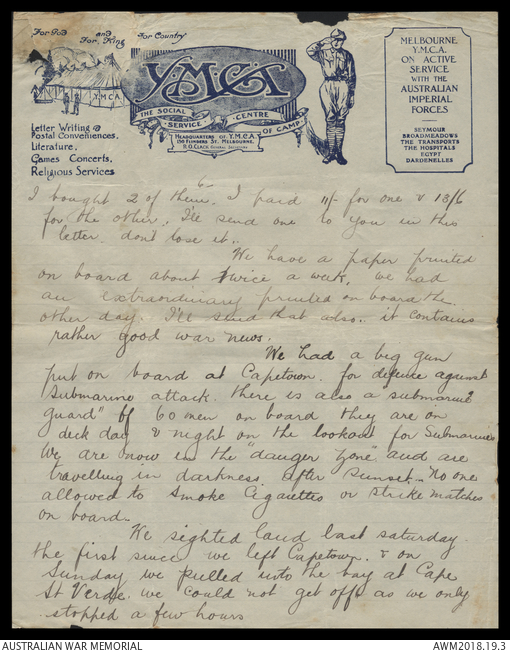 For God and For King For Country
Y.M.C.A
YMCA
THE SOCIAL
SERVICE CENTRE
OF CAMP
HEADQUARTERS OF Y.M.C.A
MELBOURNE
Letter Writing &
Postal Conveniences,
Literature,
Games Concerts,
Religious Services
MELBOURNE
Y.M.C.A.
ON ACTIVE
SERVICE
WITH THE
AUSTRALIAN
IMPERIAL
FORCES
SEYMOUR
BROADMEADOWS
THE TRANSPORTS
THE HOSPITALS
EGYPT
DARDENELLES
6-
I bought 2 of them. I paid 11/- for one & 13/6
for the other. I'll send one to you in this
letter. don't lose it.
We have a paper printed
on board about twice a week, we had
an extraordinary printed on board the
other day. I'll send that also. it contains
rather good war news.
We had a big gun
put on board at Capetown. for defense against
Submarine attack. there is also a submarine
guard" of 60 men on board they are on
deck day & night on the lookout for Submarines
We are now in the "danger zone" and are
travelling in darkness. after sunset. No one
allowed to smoke Cigarettes or strike matches
on board.
We sighted land last saturday
the first since we left Capetown. & on
Sunday we pulled into the bay at Cape
St Verde. we could not get off as we only
stopped a few hours
AUSTRALIAN WAR MEMORIAL
AWM2018.19.3